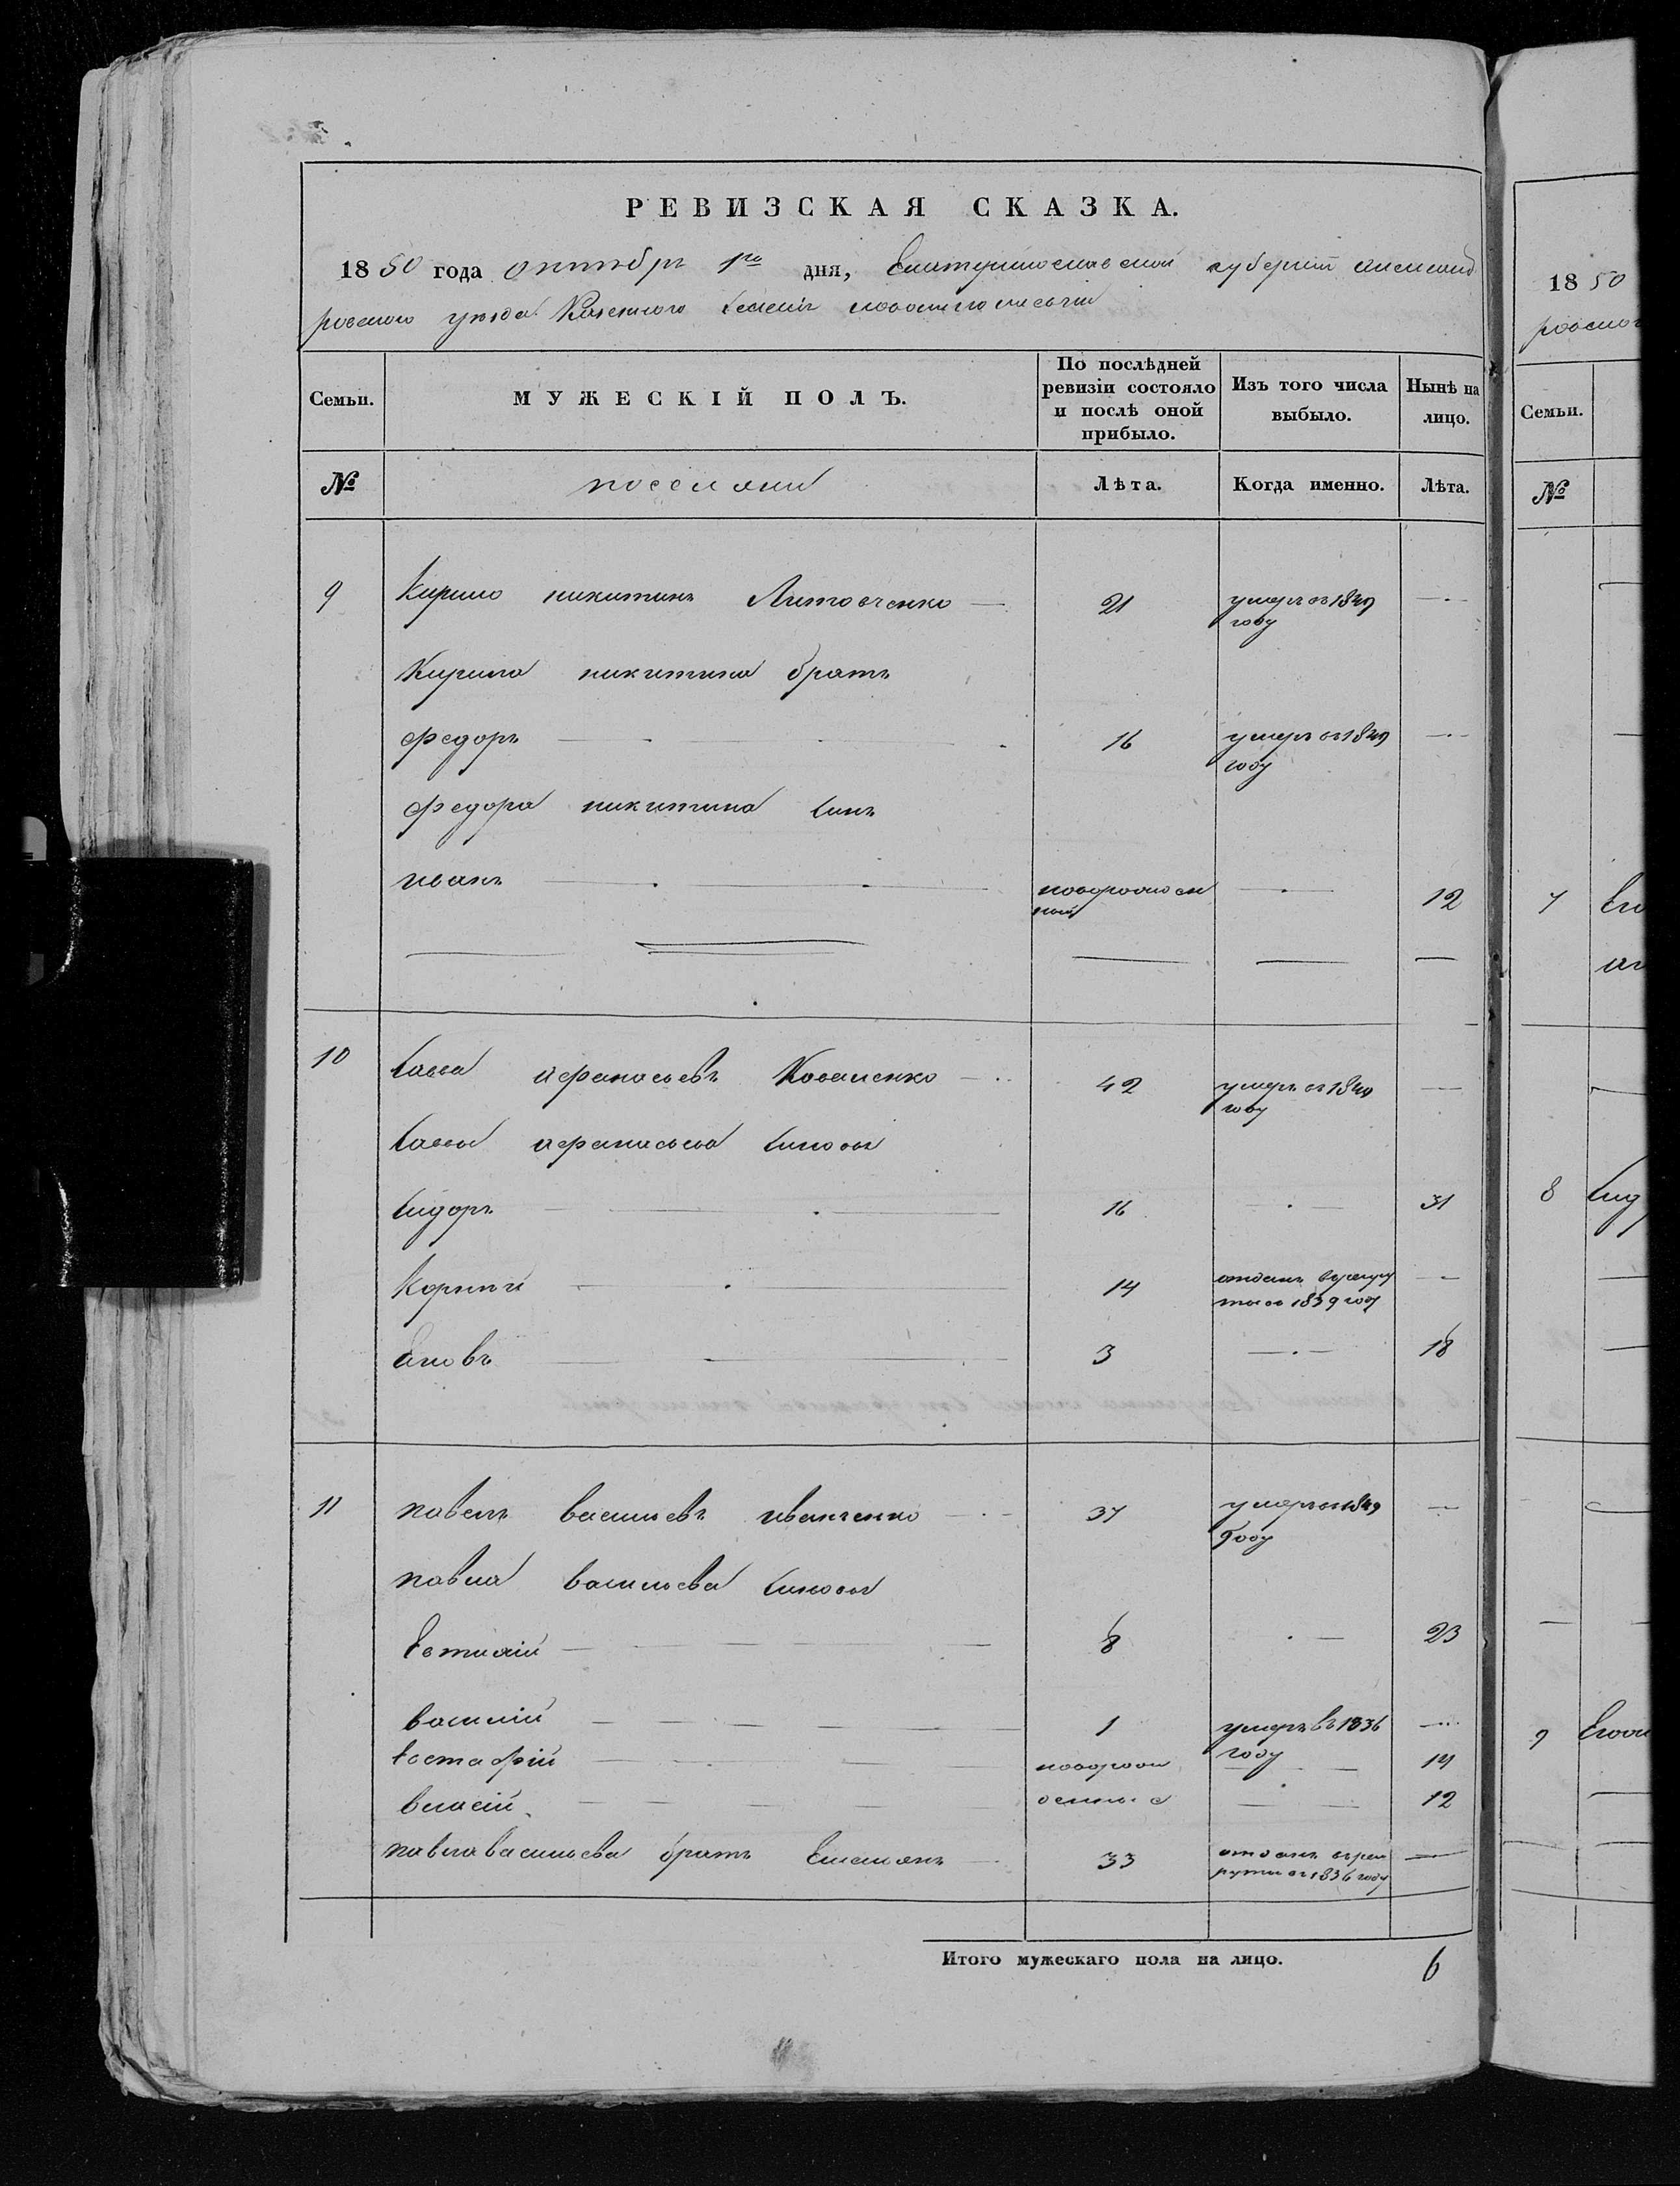 РЕВИЗСКАЯ СКАЗКА.
1850 года октября 1го дня, Екатеринославской губернии александ
ровского уезда Казенного селения
Семьи.
МУЖЕСКІЙ ПОЛЪ.
По послѣдней ревизіи состояло и послѣ оной прибыло.
Изъ того числа выбыло.
Нынѣ на лицо.
№ поселяни Лѣта. Когда именно. Лѣта.
9 Кирило никитинъ Литовченко 21 умеръ въ 1849 году
Кирила никитина братъ
федоръ 16 умеръ въ 1849 году
федора никитина синъ
иванъ новорожден ный 12
10 Савва афанасьевъ Коваленко 42 умеръ въ 1849 году
Саввы афанасьева синовья
Сидоръ 16 31
Корнѣй 14 отданъ в рекру ты въ 1839 году
Яковъ 3 18
11 павелъ васильевъ иванченко 37 умеръ въ 1849 году
павла васильева синовья
Евтихій 8 23
василій 1 умеръ въ 1836 году
Евстафій новорож 14
власій денные 12
павла васильева братъ Емельянъ 33 отданъ въ рек руты въ 1836 году
Итого мужескаго пола на лицо. 6
1850
ровског
Семьи.
№
7
8 Сид
9